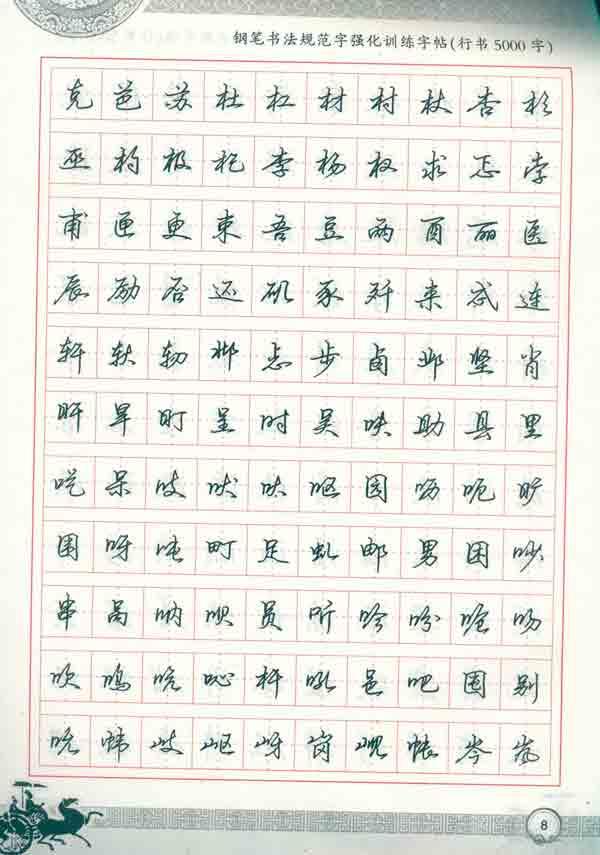 钢笔书法规范字强化训练字帖(行书5000字)
克 芭 苏 杜 杠 材 村 杖 杏 杉
巫 杓 极 杞 李 杨 杈 求 忑 孛
甫 匣 更 束 吾 豆 两 酉 丽 医
辰 励 否 还 矶 豕 歼 来 忒 连
轩 轫 邶 忐 步 卤 邺 坚 肖
旰 旱 盯 呈 时 吴 呋 助 县 里
呓 呆 吱 吠 呔 呕 园 呖 呃 旷
围 呀 吨 町 足 虬 邮 男 困 吵
串 呙 呐 呗 员 听 吟 吩 呛 吻
吹 鸣 吭 吣 吼 邑 吧 囤 别
吮 帏 岐 岖 岈 岗 岘 帐 岑 岚
8